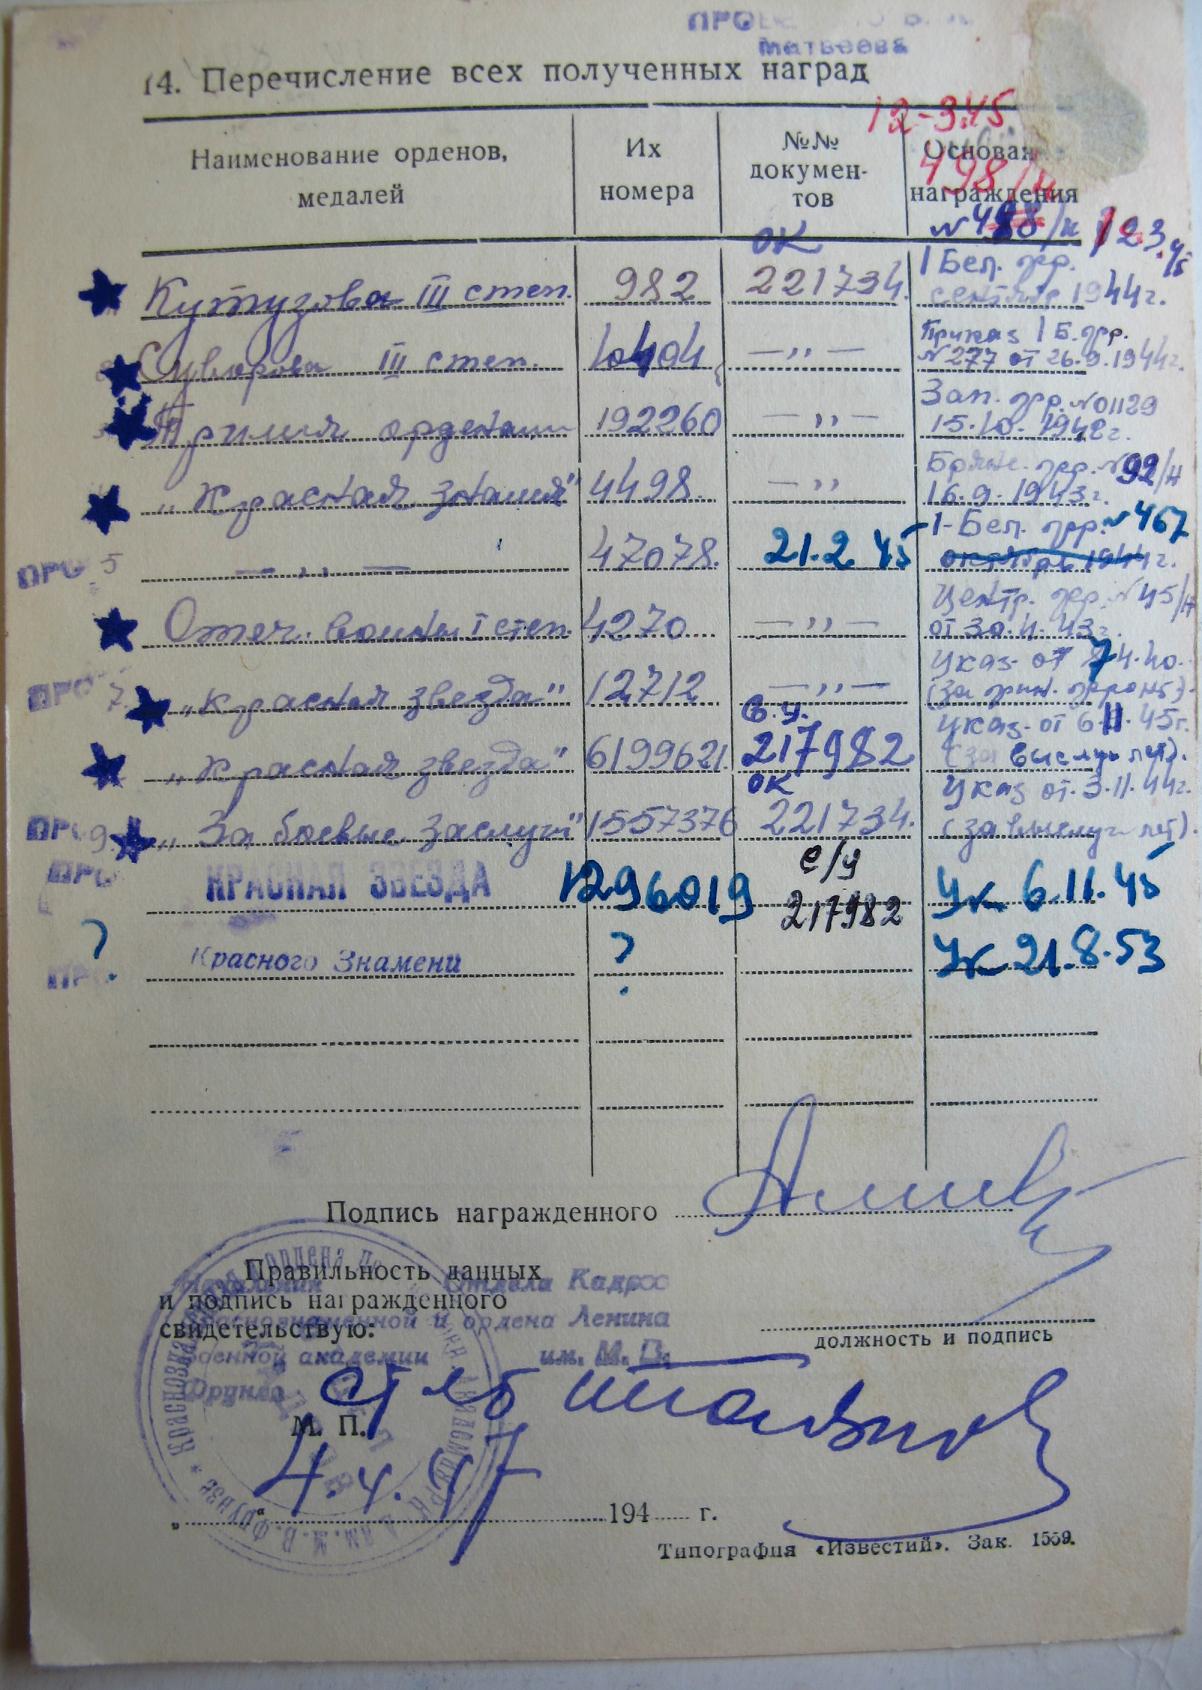 Матвеева
14. Перечисление всех полученных наград
12-3.45
Наименование орденов, медалей
Их номера
№№ документов
Основан награждения
498/н
№ 498/н 12.3.45
ОК
Кутузова III степ. 982 221734. 1 Бел. фр. 1944г.
Суворова III степ. 10404 —„— Приказ 1 Б.фр. №277 от 26.9.1944г.
орденами 192260 —„— Зап. фр. №01129 15.10.1942г.
„Красная знамя" 4498 —„ Брянс. фр. №92/н 16.9.1943г.
5 —„— 47078. 21.2.45 1-Бел. фр. №467 октябрь 1944г.
Отеч. войны I степ. 4270 —„— Центр. фр. №45/н от 30. 43г.
7. „Красная звезда" 12712 —„— Указ от 7.4.40. (за фин. фронт).
„Красная звезда" 619962 в.у. 217982 Указ от 6.11.45г. (за выслугу лет).
9. „За боевые заслуги" 1557376 ОК 221734. Указ от 3.11.44г. (за выслугу лет).
КРАСНАЯ ЗВЕЗДА 1296019 с/у 217982 Ук 6.11.45
? Красного Знамени ? Ук 21.8.53
Подпись награжденного
Правильность данных
и подпись награжденного
свидетельствую:
Начальник Отдела Кадров
Краснознаменной и ордена Ленина
Военной академии им. М. В.
Фрунзе
должность и подпись
М. П.
„ “ 194 г.
Типография «Известий». Зак. 1559.